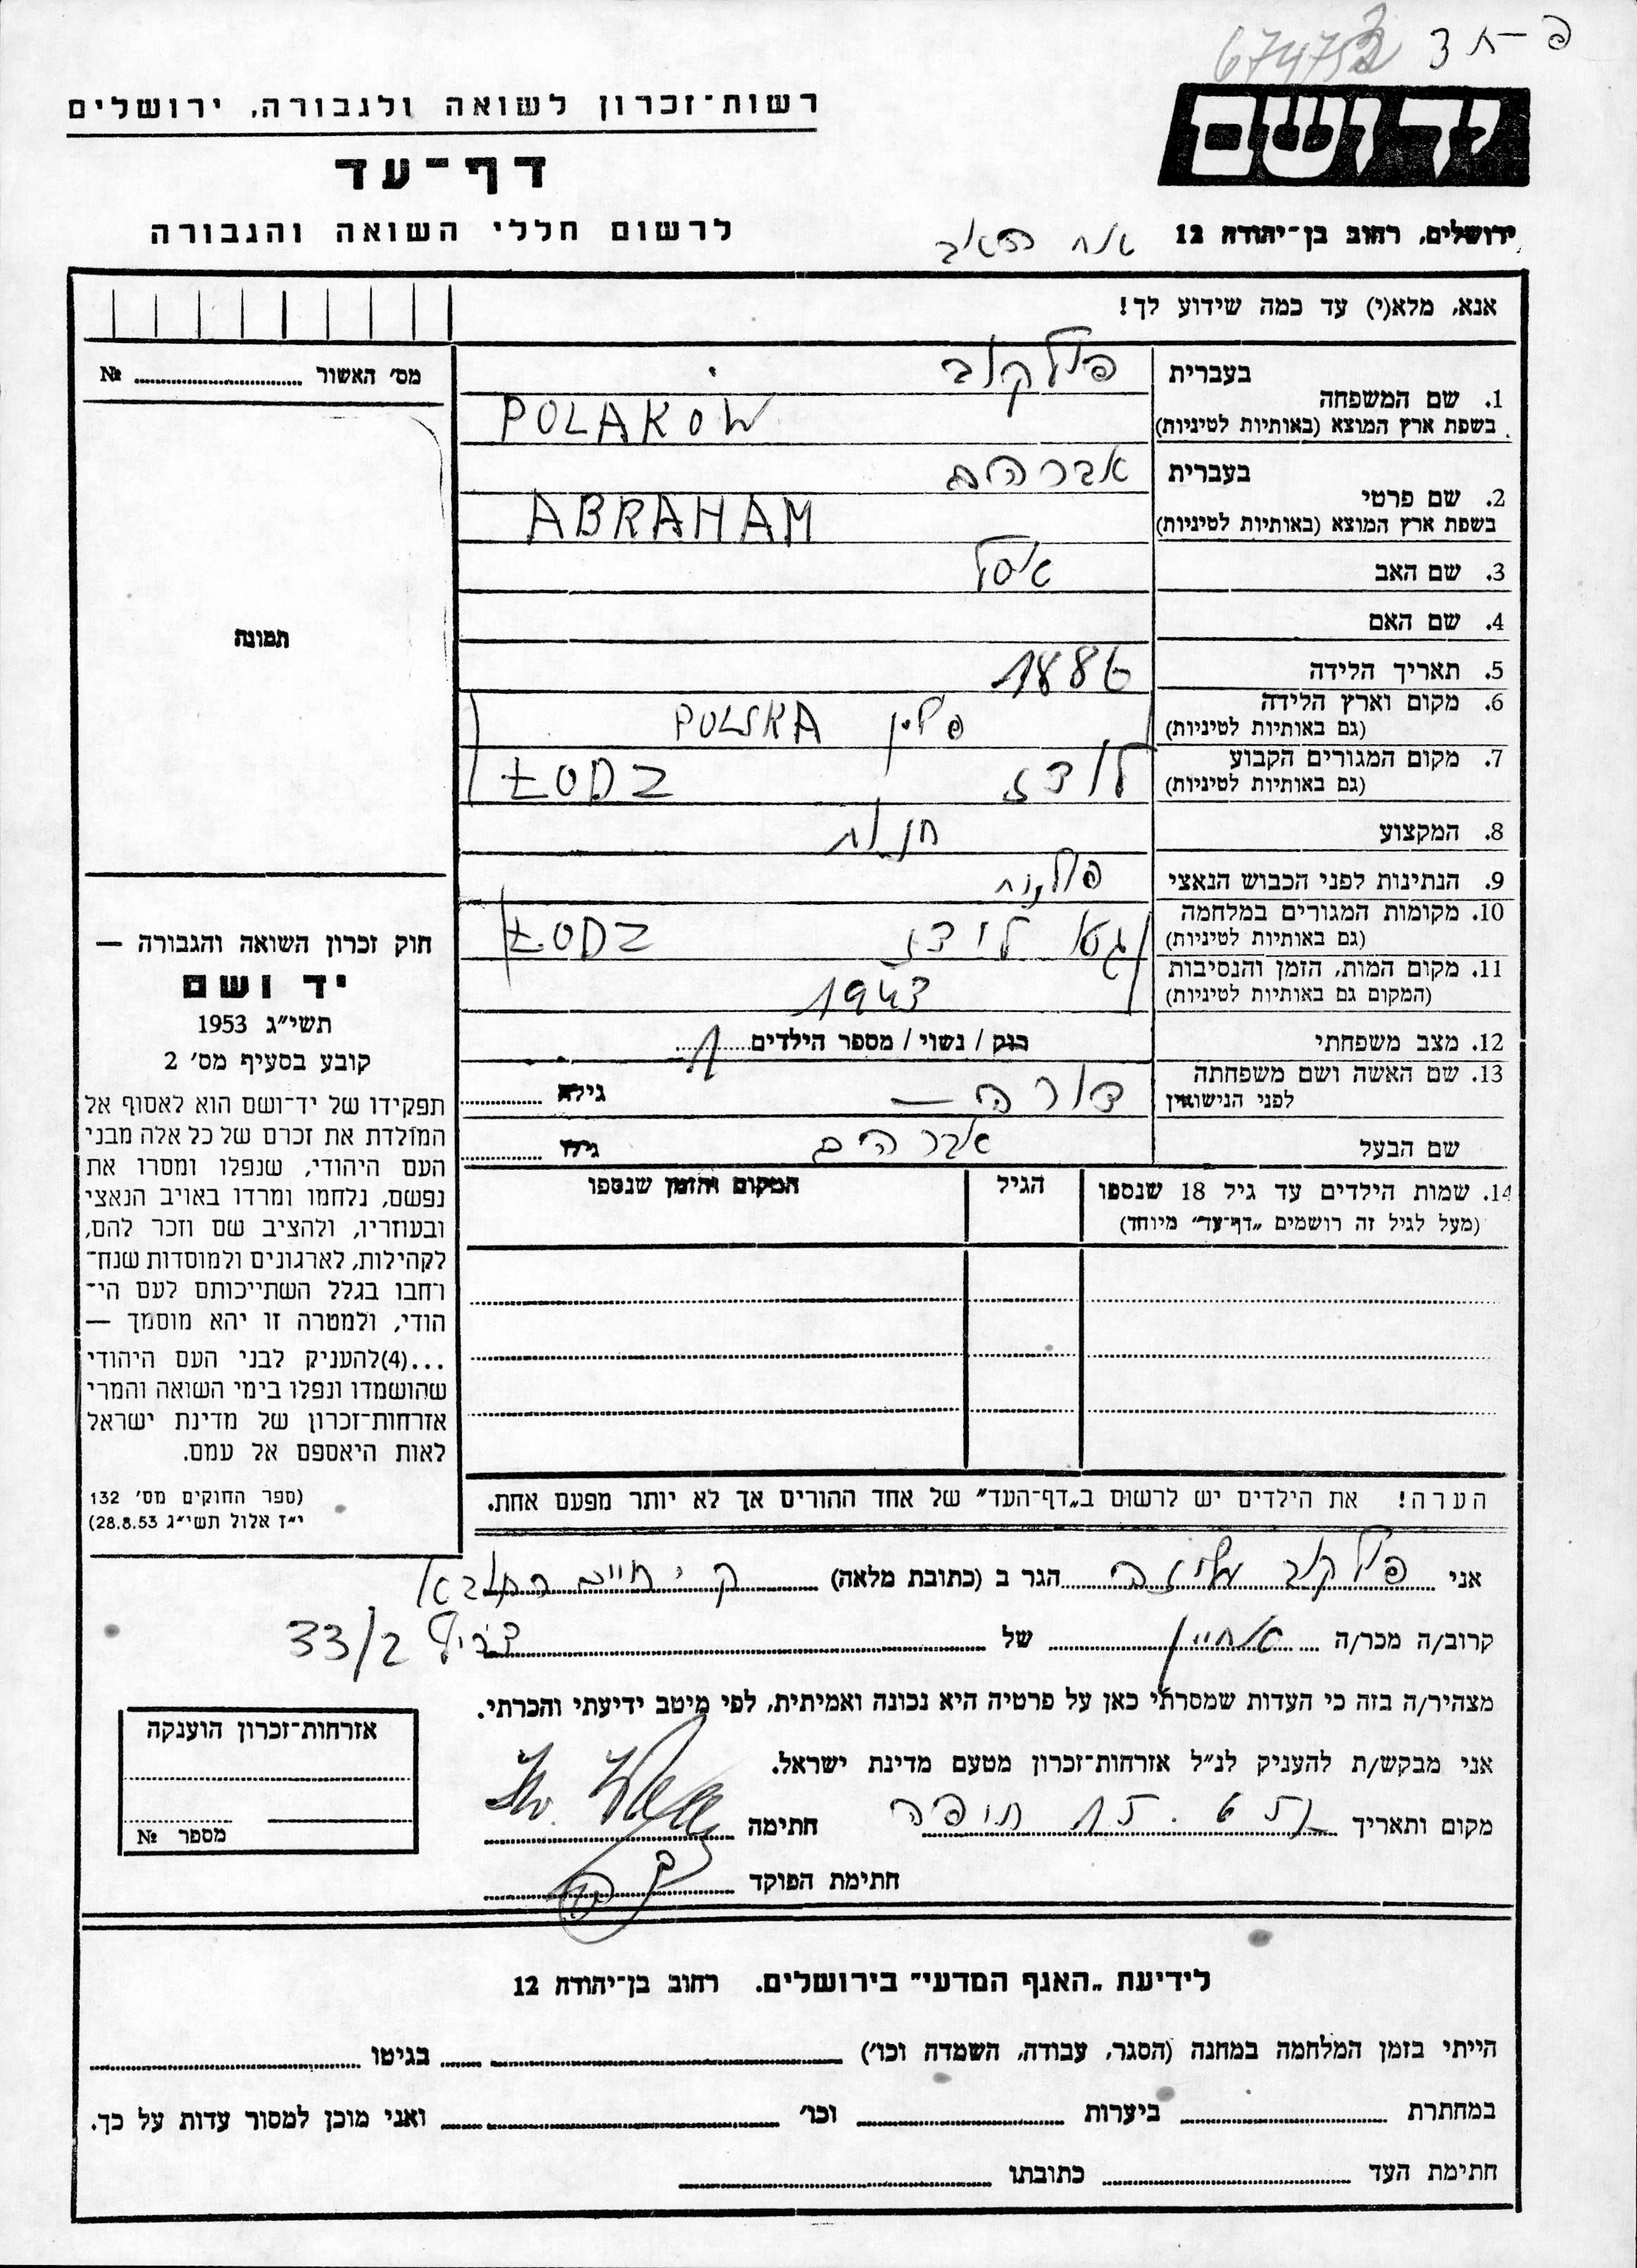 67475
רשות־זכרון לשואה ולגבורה, ירושלים
דף־עד
לרשום חללי השואה והגבורה
יד ושם
ירושלים, רחוב בן־יהודה 12
אנא, מלא(י) עד כמה שידוע לך!
מס׳ האשור № 
תמונה
בעברית פולקוב
1. שם המשפחה
בשפת ארץ המוצא (באותיות לטיניות) POLAKOW
בעברית אברהם
2. שם פרטי
בשפת ארץ המוצא (באותיות לטיניות) ABRAHAM
3. שם האב
4. שם האם
5. תאריך הלידה 1886
6. מקום וארץ הלידה
(גם באותיות לטיניות) פולין POLSKA
7. מקום המגורים הקבוע
(גם באותיות לטיניות) לודז ŁODZ
8. המקצוע
9. הנתינות לפני הכבוש הנאצי פולנית
10. מקומות המגורים במלחמה
(גם באותיות לטיניות) גטו לודז ŁODZ
11. מקום המות, הזמן והנסיבות
(המקום גם באותיות לטיניות) 1943
12. מצב משפחתי רוק / נשוי / מספר הילדים 1
13. שם האשה ושם משפחתה
לפני הנישואין דורה — גילה
שם הבעל אברהם גילו
14. שמות הילדים עד גיל 18 שנספו הגיל המקום והזמן שנספו
(מעל לגיל זה רושמים „דף־עד״ מיוחד)
הערה! את הילדים יש לרשום ב„דף־העד״ של אחד ההורים אך לא יותר מפעם אחת.
חוק זכרון השואה והגבורה —
יד ושם
תשי״ג 1953
קובע בסעיף מס׳ 2
תפקידו של יד־ושם הוא לאסוף אל
המולדת את זכרם של כל אלה מבני
העם היהודי, שנפלו ומסרו את
נפשם, נלחמו ומרדו באויב הנאצי
ובעוזריו, ולהציב שם וזכר להם,
לקהילות, לארגונים ולמוסדות שנח־
רחבו בגלל השתייכותם לעם הי־
הודי, ולמטרה זו יהא מוסמך —
...(4)להעניק לבני העם היהודי
שהושמדו ונפלו בימי השואה והמרי
אזרחות־זכרון של מדינת ישראל
לאות היאספם אל עמם.
(ספר החוקים מס׳ 132
י״ז אלול תשי״ג 28.8.53)
אני פולקוב עליזה הגר ב (כתובת מלאה) ק׳ חיים
קרוב/ה מכר/ה אחיין של 33/2
מצהיר/ה בזה כי העדות שמסרתי כאן על פרטיה היא נכונה ואמיתית, לפי מיטב ידיעתי והכרתי.
אני מבקש/ת להעניק לנ״ל אזרחות־זכרון מטעם מדינת ישראל.
מקום ותאריך חיפה חתימה
חתימת הפוקד
אזרחות־זכרון הוענקה
מספר №
לידיעת „האגף המדעי״ בירושלים. רחוב בן־יהודה 12
הייתי בזמן המלחמה במחנה (הסגר, עבודה, השמדה וכו׳) בגיטו
במחתרת ביערות וכו׳ ואני מוכן למסור עדות על כך.
חתימת העד כתובתו